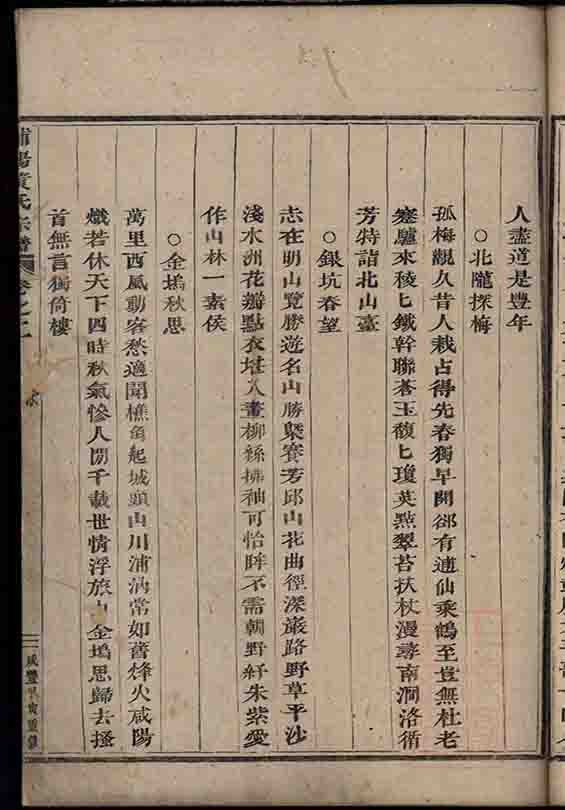 人盡道是豐年
○北隴探梅
孤梅觀久昔人栽占得先春獨早開卻有逋仙乘鶴至豈無杜老
蹇驢來稜匕鐵幹聯蒼玉馥匕瓊英點翠苔扶杖漫尋南澗洛循
芳特詣北山臺
○銀坑春望
志在明山覽勝遊名山勝槩賽芳邱山花曲徑深巖路野草平沙
淺水洲花瓣點衣堪入畫柳絲拂袖可怡眸不需朝野紆朱紫愛
作山林一素侯
○金塢秋思
萬里西風動客愁適聞樵角起城頭山川浦汭常如舊烽火咸陽
熾若休天下四時秋氣慘人間千載世情浮旅山金塢思歸去搔
首無言獨倚樓
浦陽黃氏宗譜 卷之二
咸豐甲寅重修